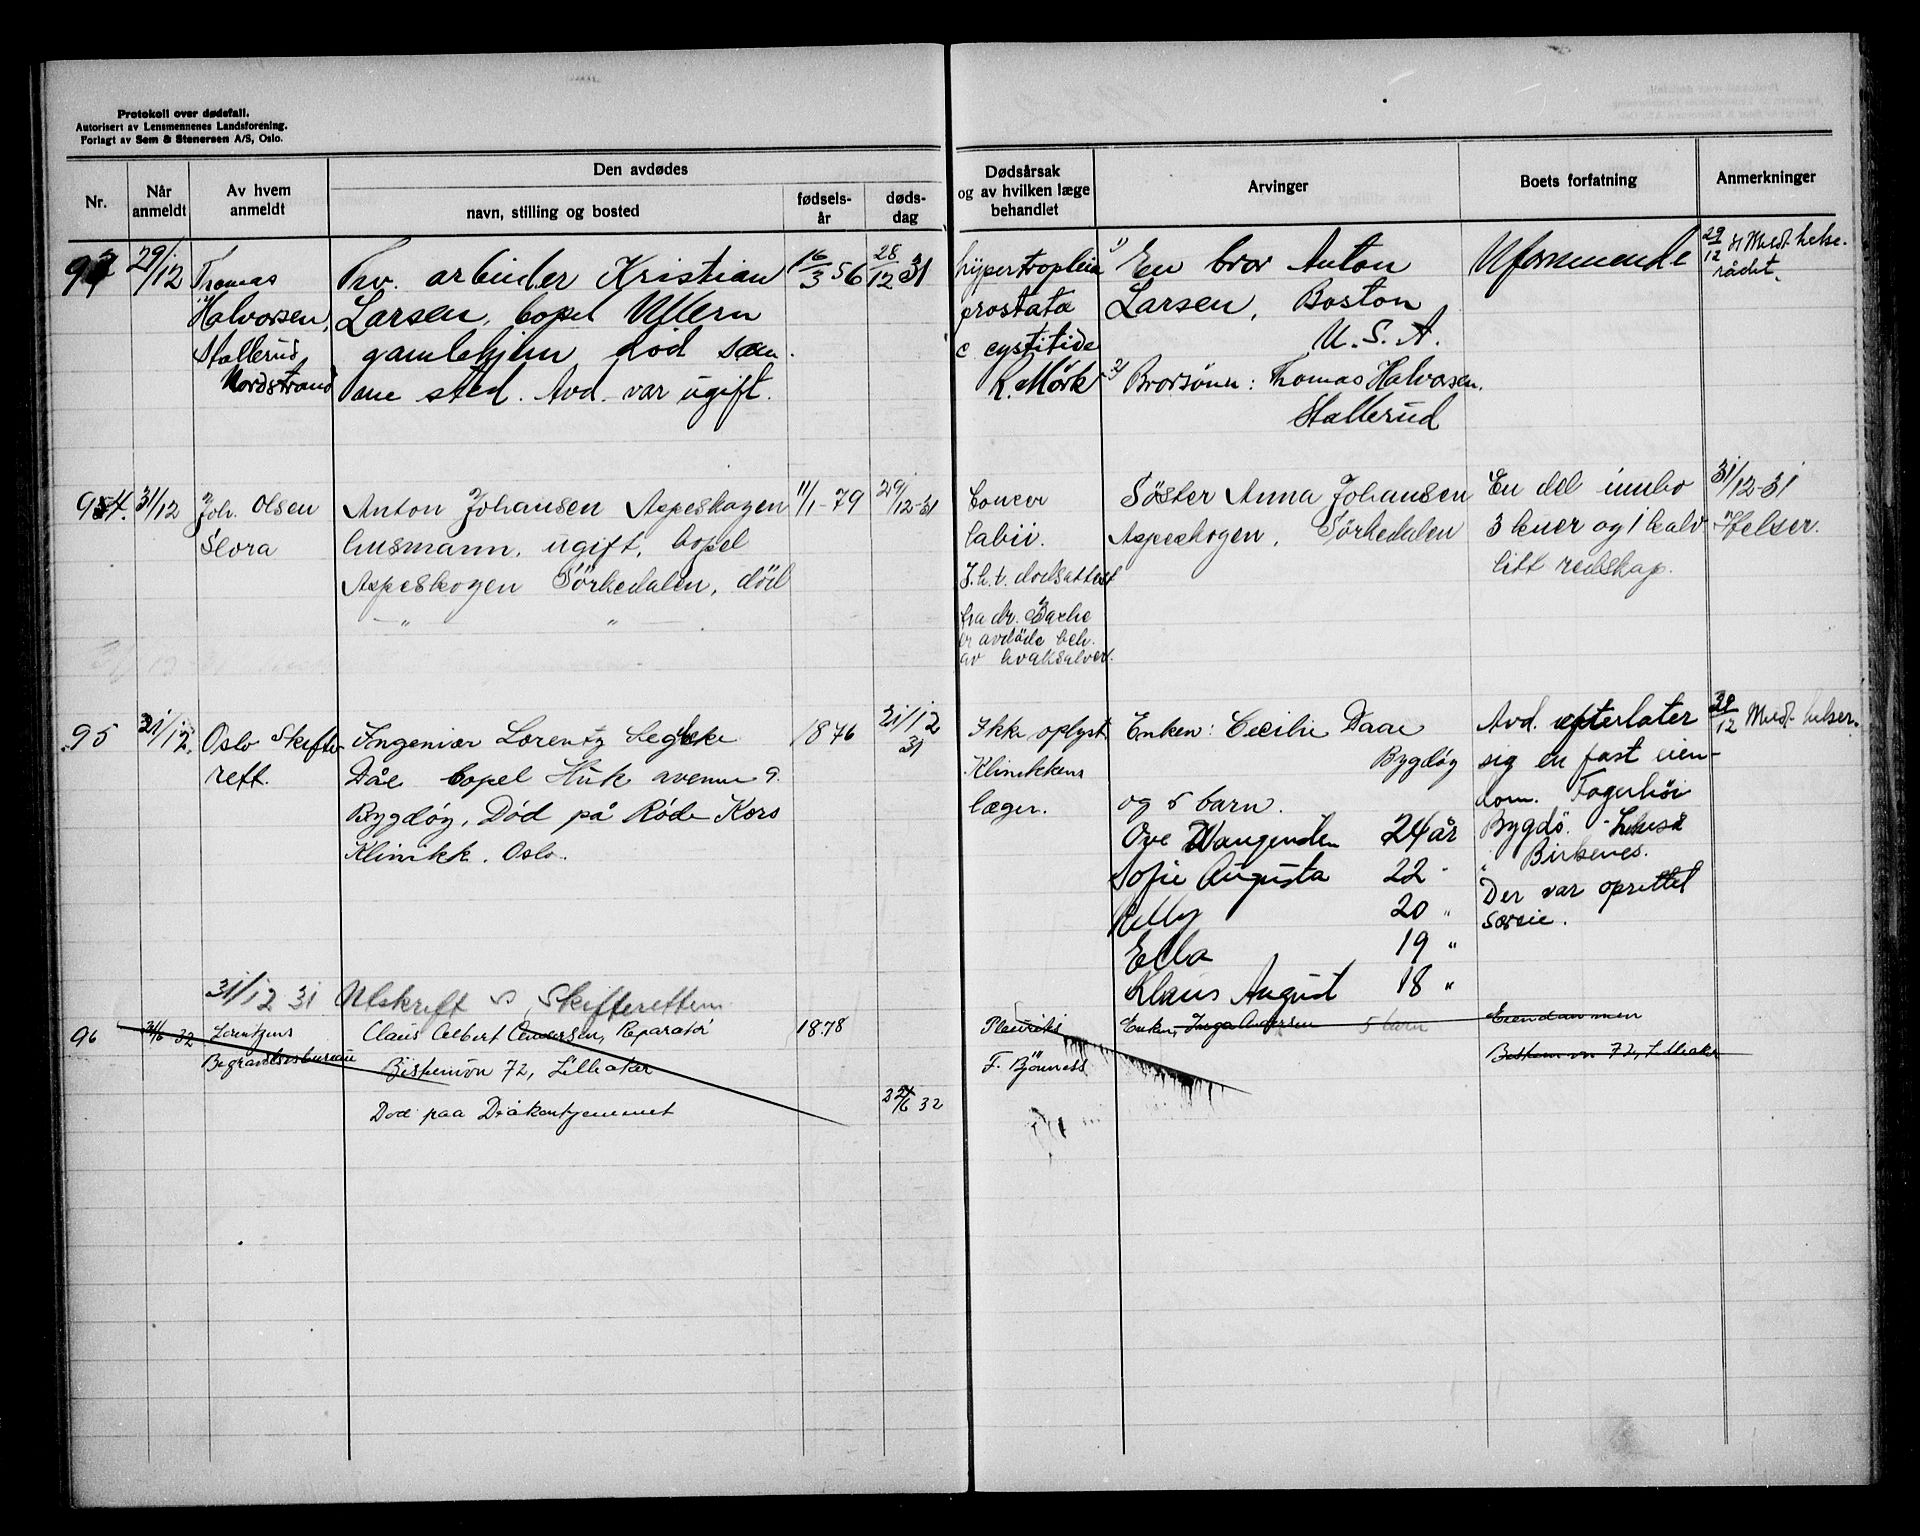 Protokoll over dødsfall.
Autorisert av Lensmennenes Landsforening.
Forlagt av Sem & Stenersen A/S, Oslo.
Nr.
Når anmeldt
Av hvem anmeldt
Den avdødes
navn, stilling og bosted
fødsels-år
døds-dag
Dødsårsak og av hvilken læge behandlet
Arvinger
Boets forfatning
Anmerkninger
93
29/12
Thomas
Halvorsen,
Stallerud
Nordstrand
Fhv. arbeider Kristian
Larsen, bopel Ullern
gamlehjem, død sam-
me sted. Avd. var ugift.
16/3 56
28/12 31
hypertrophia
prostata
c. cystitide
R. Mörk
1) En bror Anton
Larsen, Boston
U. S. A.
2) Brorsönn: Thomas Halvorsen,
Stallerud
Uformuende
29/12 31 Meldt helse-
rådet.
94.
31/12
Joh. Olsen
Slora
Anton Johansen Aspeskogen
husmann, ugift, bopel
Aspeskogen Sörkedalen, död
" "
11/1-79
29/12-31
Cancer
labii.
I.h.t. dødsattest
fra dr. Bache
er avdöde beh.
av kvaksalver.
Söster Anna Johansen
Aspeskogen, Sörkedalen
En del innbo
3 kuer og 1 kalv
litt redskap.
31/12-31
Helser.
95
31/12.
Oslo Skifte-
rett.
Ingeniør Lorentz Segelcke
Dåe bopel Huk avenue 9
Bygdøy, Død på Røde Kors
Klinikk. Oslo.
1876
21/12
31
Ikke oplyst
Klinikkens
læger.
Enken: Cecilie Daae
Bygdøy
og 5 barn.
Ove Wangensten 24 år
Sofie Augusta 22 "
Elly 20 "
Ella 19 "
Klaus August 18 "
Avd. efterlater
sig en fast eien-
dom. Fagerhöi
Bygdö.
" Birkenes.
Der var oprettet
særeie.
29/12 Meldt helser.
31/12 31 Utskrift Skifteretten
96
32
Lorentzens
Begravelsesbureau
Claus Albert Andersen, Reparatör
Bispeveien 72, Lilleaker
Død paa Diakonhjemmet
1878
6 32
Pleurits
F. Bjönness
Enken, Inga Andersen 5 barn
Eiendommen
72, Lilleaker